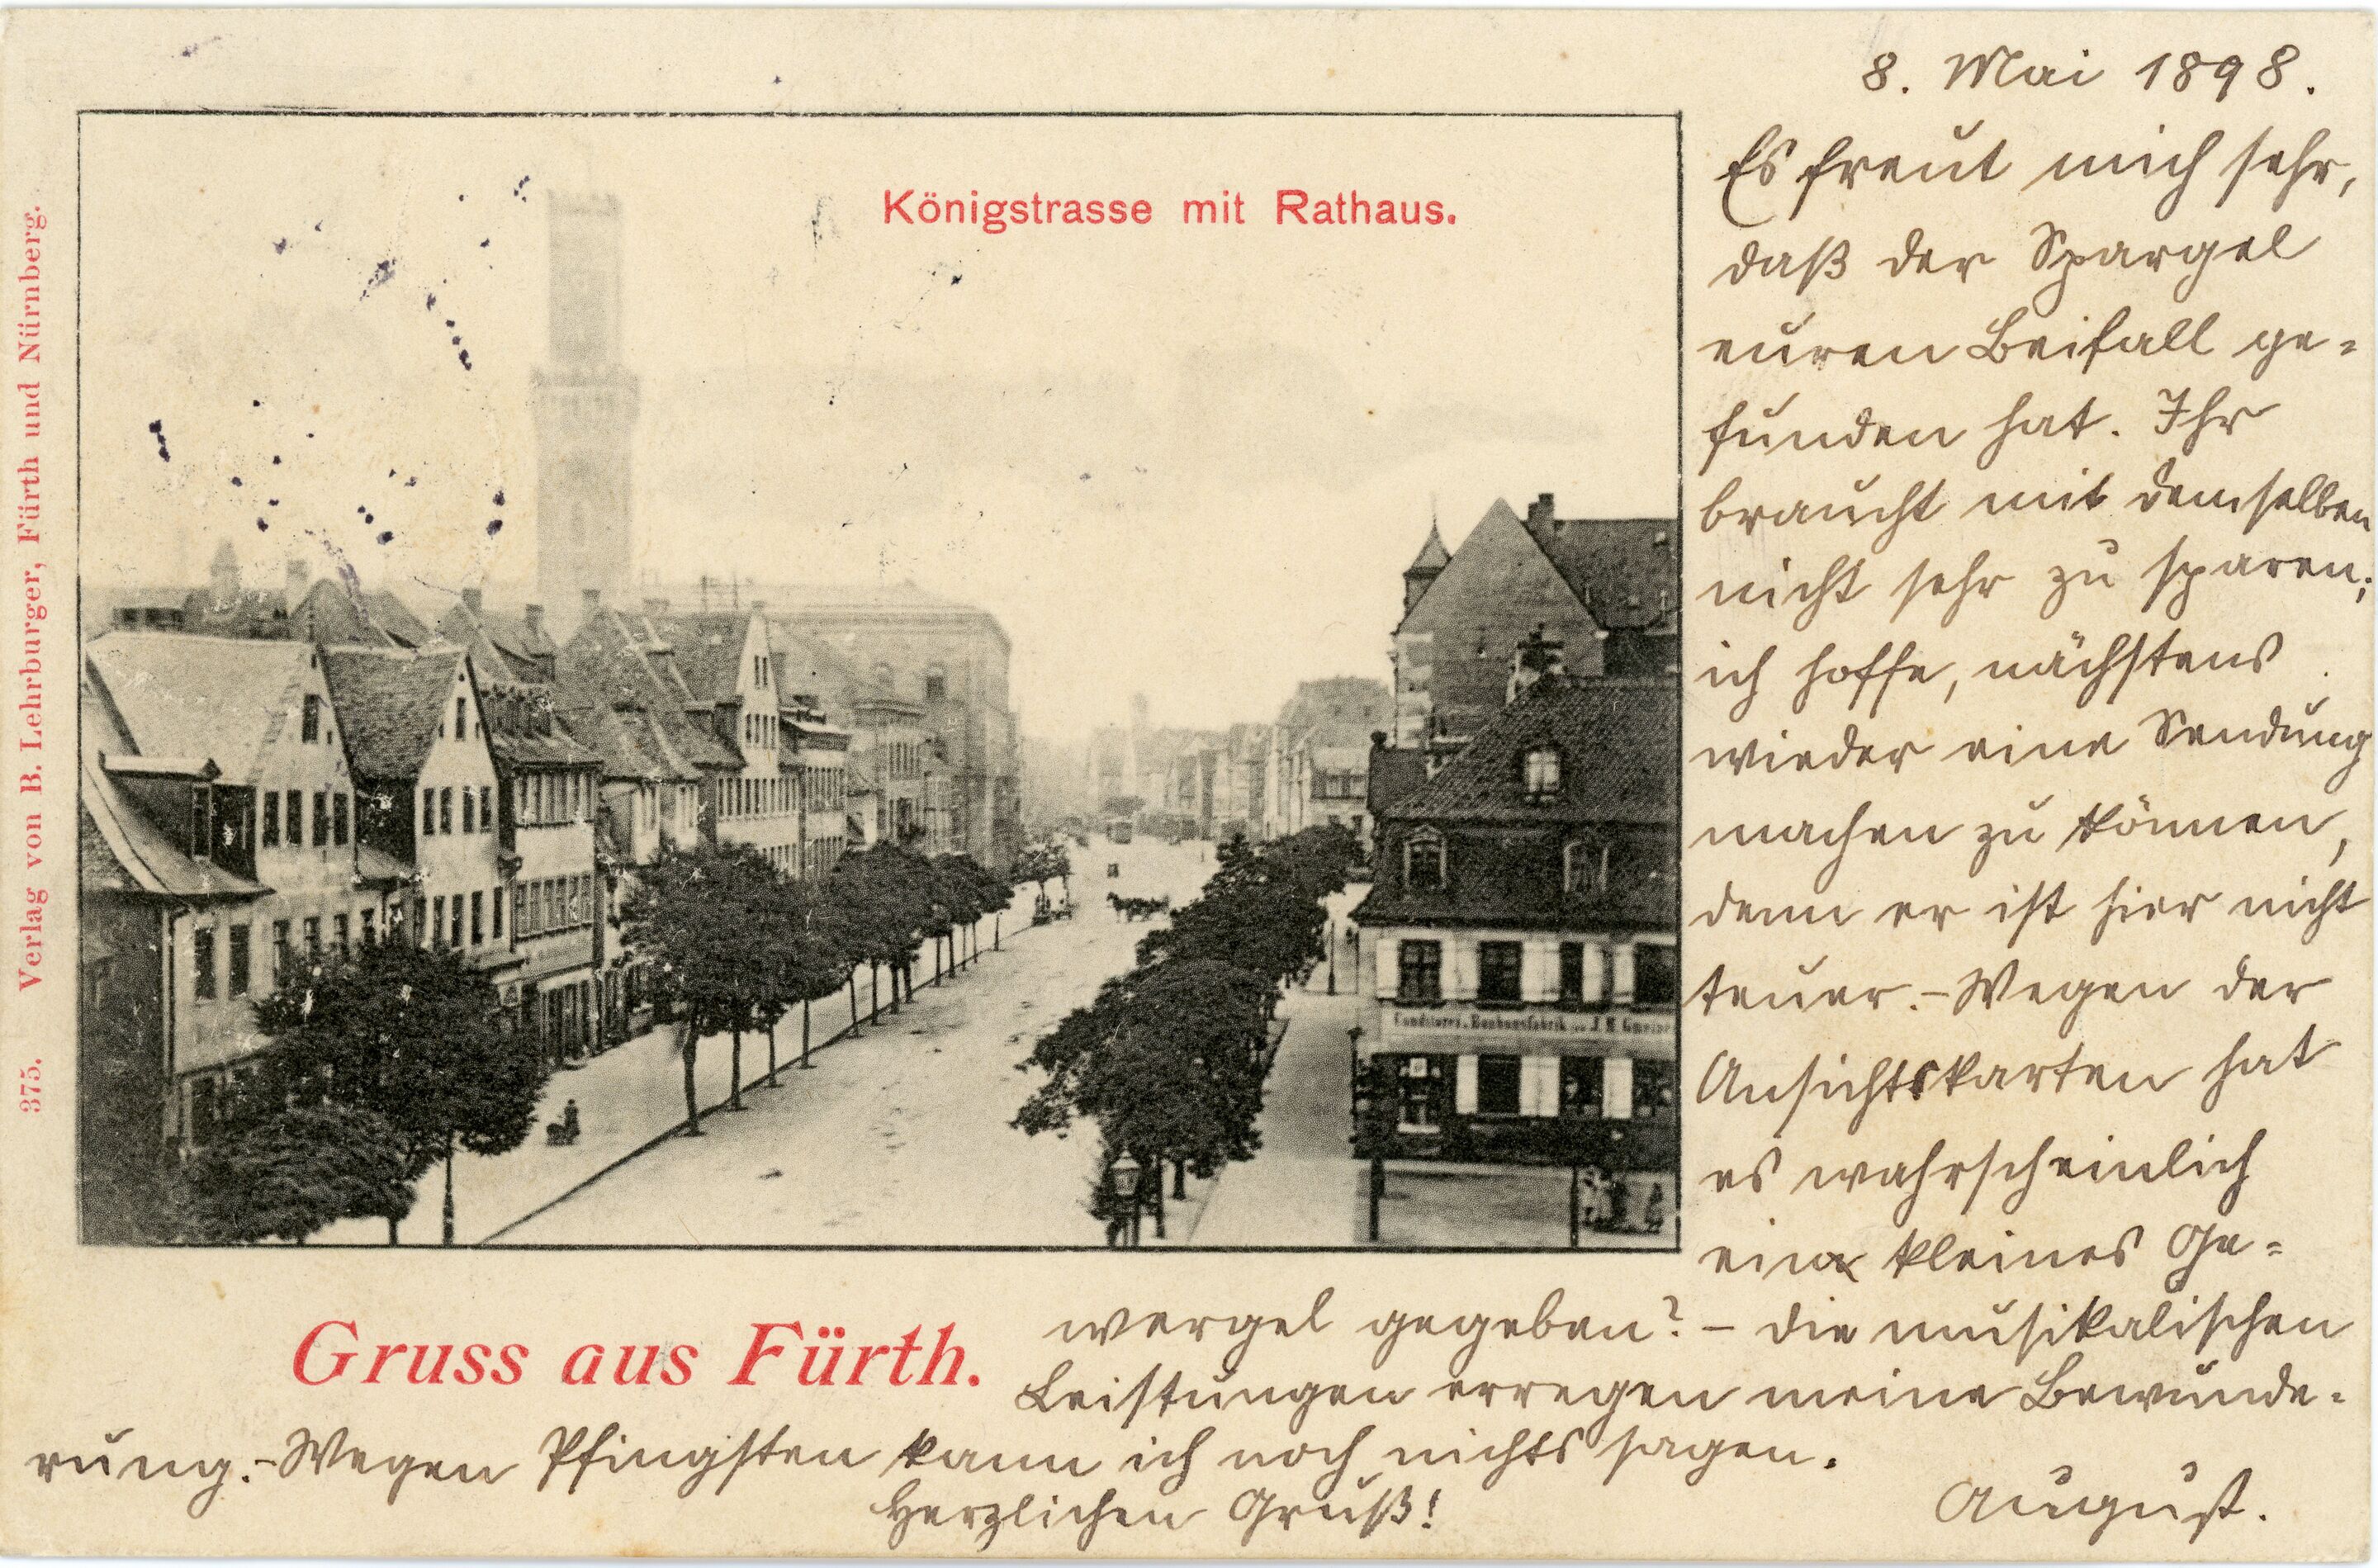 8. Mai 1898.
Es freut mich sehr,
daß der Spargel
euren Beifall ge=
funden hat. Ihr
braucht mit demselben
nicht sehr zu sparen;
ich hoffe, nächstens
wieder eine Sendung
machen zu können,
denn er ist hier nicht
teuer. – Wegen der
Ansichtskarten hat
es wahrscheinlich
ein kleines Ge=
wergel gegeben? – die musikalischen
Leistungen erregen meine Bewunde=
rung. – Wegen Pfingsten kann ich noch nichts sagen.
Herzlichen Gruß!
August.
Königstrasse mit Rathaus.
Gruss aus Fürth.
375. Verlag von B. Lehrburger, Fürth und Nürnberg.